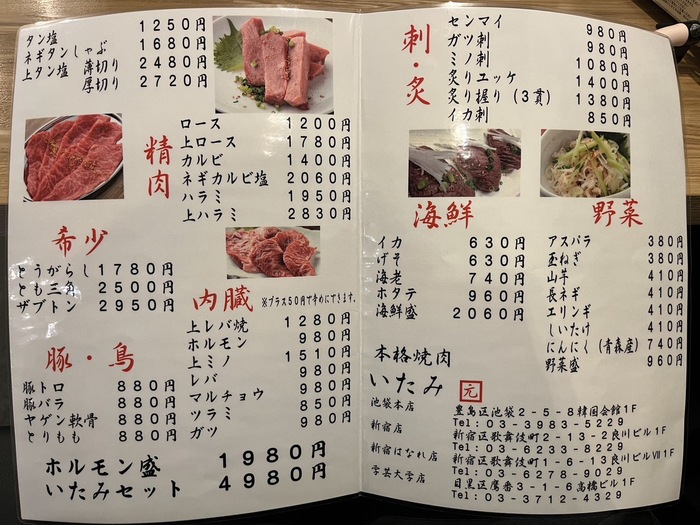 タン塩 1250円
ネギタンしゃぶ 1680円
上タン塩 薄切り 2480円
厚切り 2720円
精肉
ロース 1200円
上ロース 1780円
カルビ 1400円
ネギカルビ塩 2060円
ハラミ 1950円
上ハラミ 2830円
希少
とうがらし 1780円
とも三角 2500円
ザブトン 2950円
内臓 ※プラス50円で辛めにできます。
上レバ焼 1280円
ホルモン 980円
上ミノ 1510円
レバ 980円
マルチョウ 980円
ツラミ 850円
ガツ 980円
豚・鳥
豚トロ 880円
豚バラ 880円
ヤゲン軟骨 880円
とりもも 880円
ホルモン盛 1980円
いたみセット 4980円
刺・炙
センマイ 980円
ガツ刺 980円
ミノ刺 1080円
炙りユッケ 1400円
炙り握り(3貫) 1380円
イカ刺 850円
海鮮
イカ 630円
げそ 630円
海老 740円
ホタテ 960円
海鮮盛 2060円
野菜
アスパラ 380円
玉ねぎ 380円
山芋 410円
長ネギ 410円
エリンギ 410円
しいたけ 410円
にんにく(青森産) 740円
野菜盛 960円
本格焼肉
いたみ 元
池袋本店 豊島区池袋2-5-8韓国会館1F
Tel:03-3983-5229
新宿店 新宿区歌舞伎町2-13-2良川ビル1F
Tel:03-6233-8229
新宿はなれ店 新宿区歌舞伎町1-6-13良川ビルVII1F
Tel:03-6278-9029
学芸大学店 目黒区鷹番3-1-6高橋ビル1F
Tel:03-3712-4329